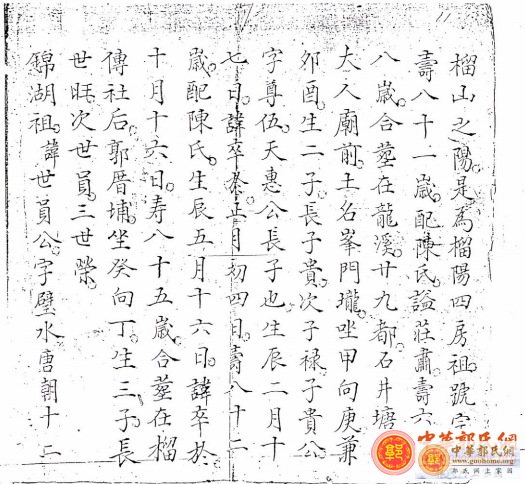 榴山之陽是為榴陽四房祖號
壽八十一歲配陳氏謚莊肅壽六
八歲合塟在龍溪廿九都石井塘
大人廟前土名峯門壠坐甲向庚兼
夘酉生二子長子貴次子祿子貴公
字尊伍天惠公長子也生辰二月十
七日諱卒於正月初四日壽八十二
歲配陳氏生辰五月十六日諱卒於
十月十六日寿八十五歲合塟在榴
傳社后郭厝埔坐癸向丁生三子長
世旺次世員三世榮
錦湖祖諱世員公字璧水唐朝十二
中華郭氏網
中華郭氏網
www.guohome.org
郭氏網上家園